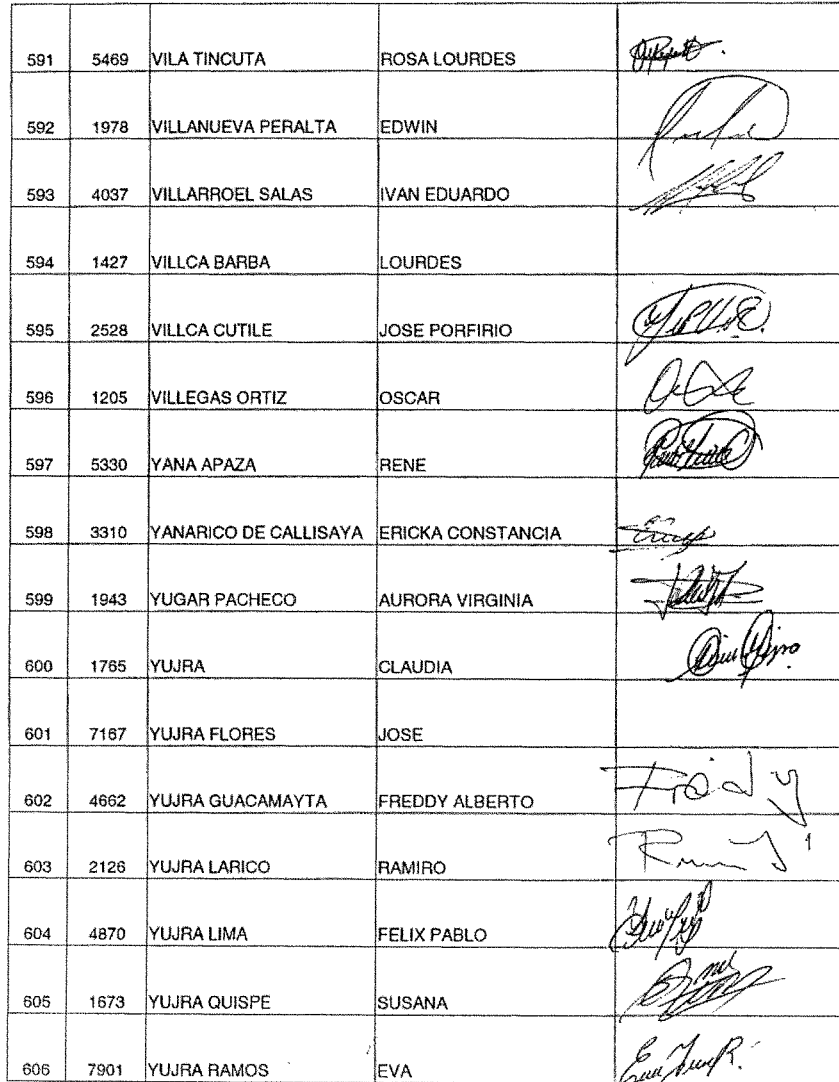 591 5469 VILA TINCUTA ROSA LOURDES
592 1978 VILLANUEVA PERALTA EDWIN
593 4037 VILLARROEL SALAS IVAN EDUARDO
594 1427 VILLCA BARBA LOURDES
595 2528 VILLCA CUTILE JOSE PORFIRIO
596 1205 VILLEGAS ORTIZ OSCAR
597 5330 YANA APAZA RENE
598 3310 YANARICO DE CALLISAYA ERICKA CONSTANCIA
599 1943 YUGAR PACHECO AURORA VIRGINIA
600 1765 YUJRA CLAUDIA
601 7167 YUJRA FLORES JOSE
602 4662 YUJRA GUACAMAYTA FREDDY ALBERTO
603 2126 YUJRA LARICO RAMIRO
604 4870 YUJRA LIMA FELIX PABLO
605 1673 YUJRA QUISPE SUSANA
606 7901 YUJRA RAMOS EVA